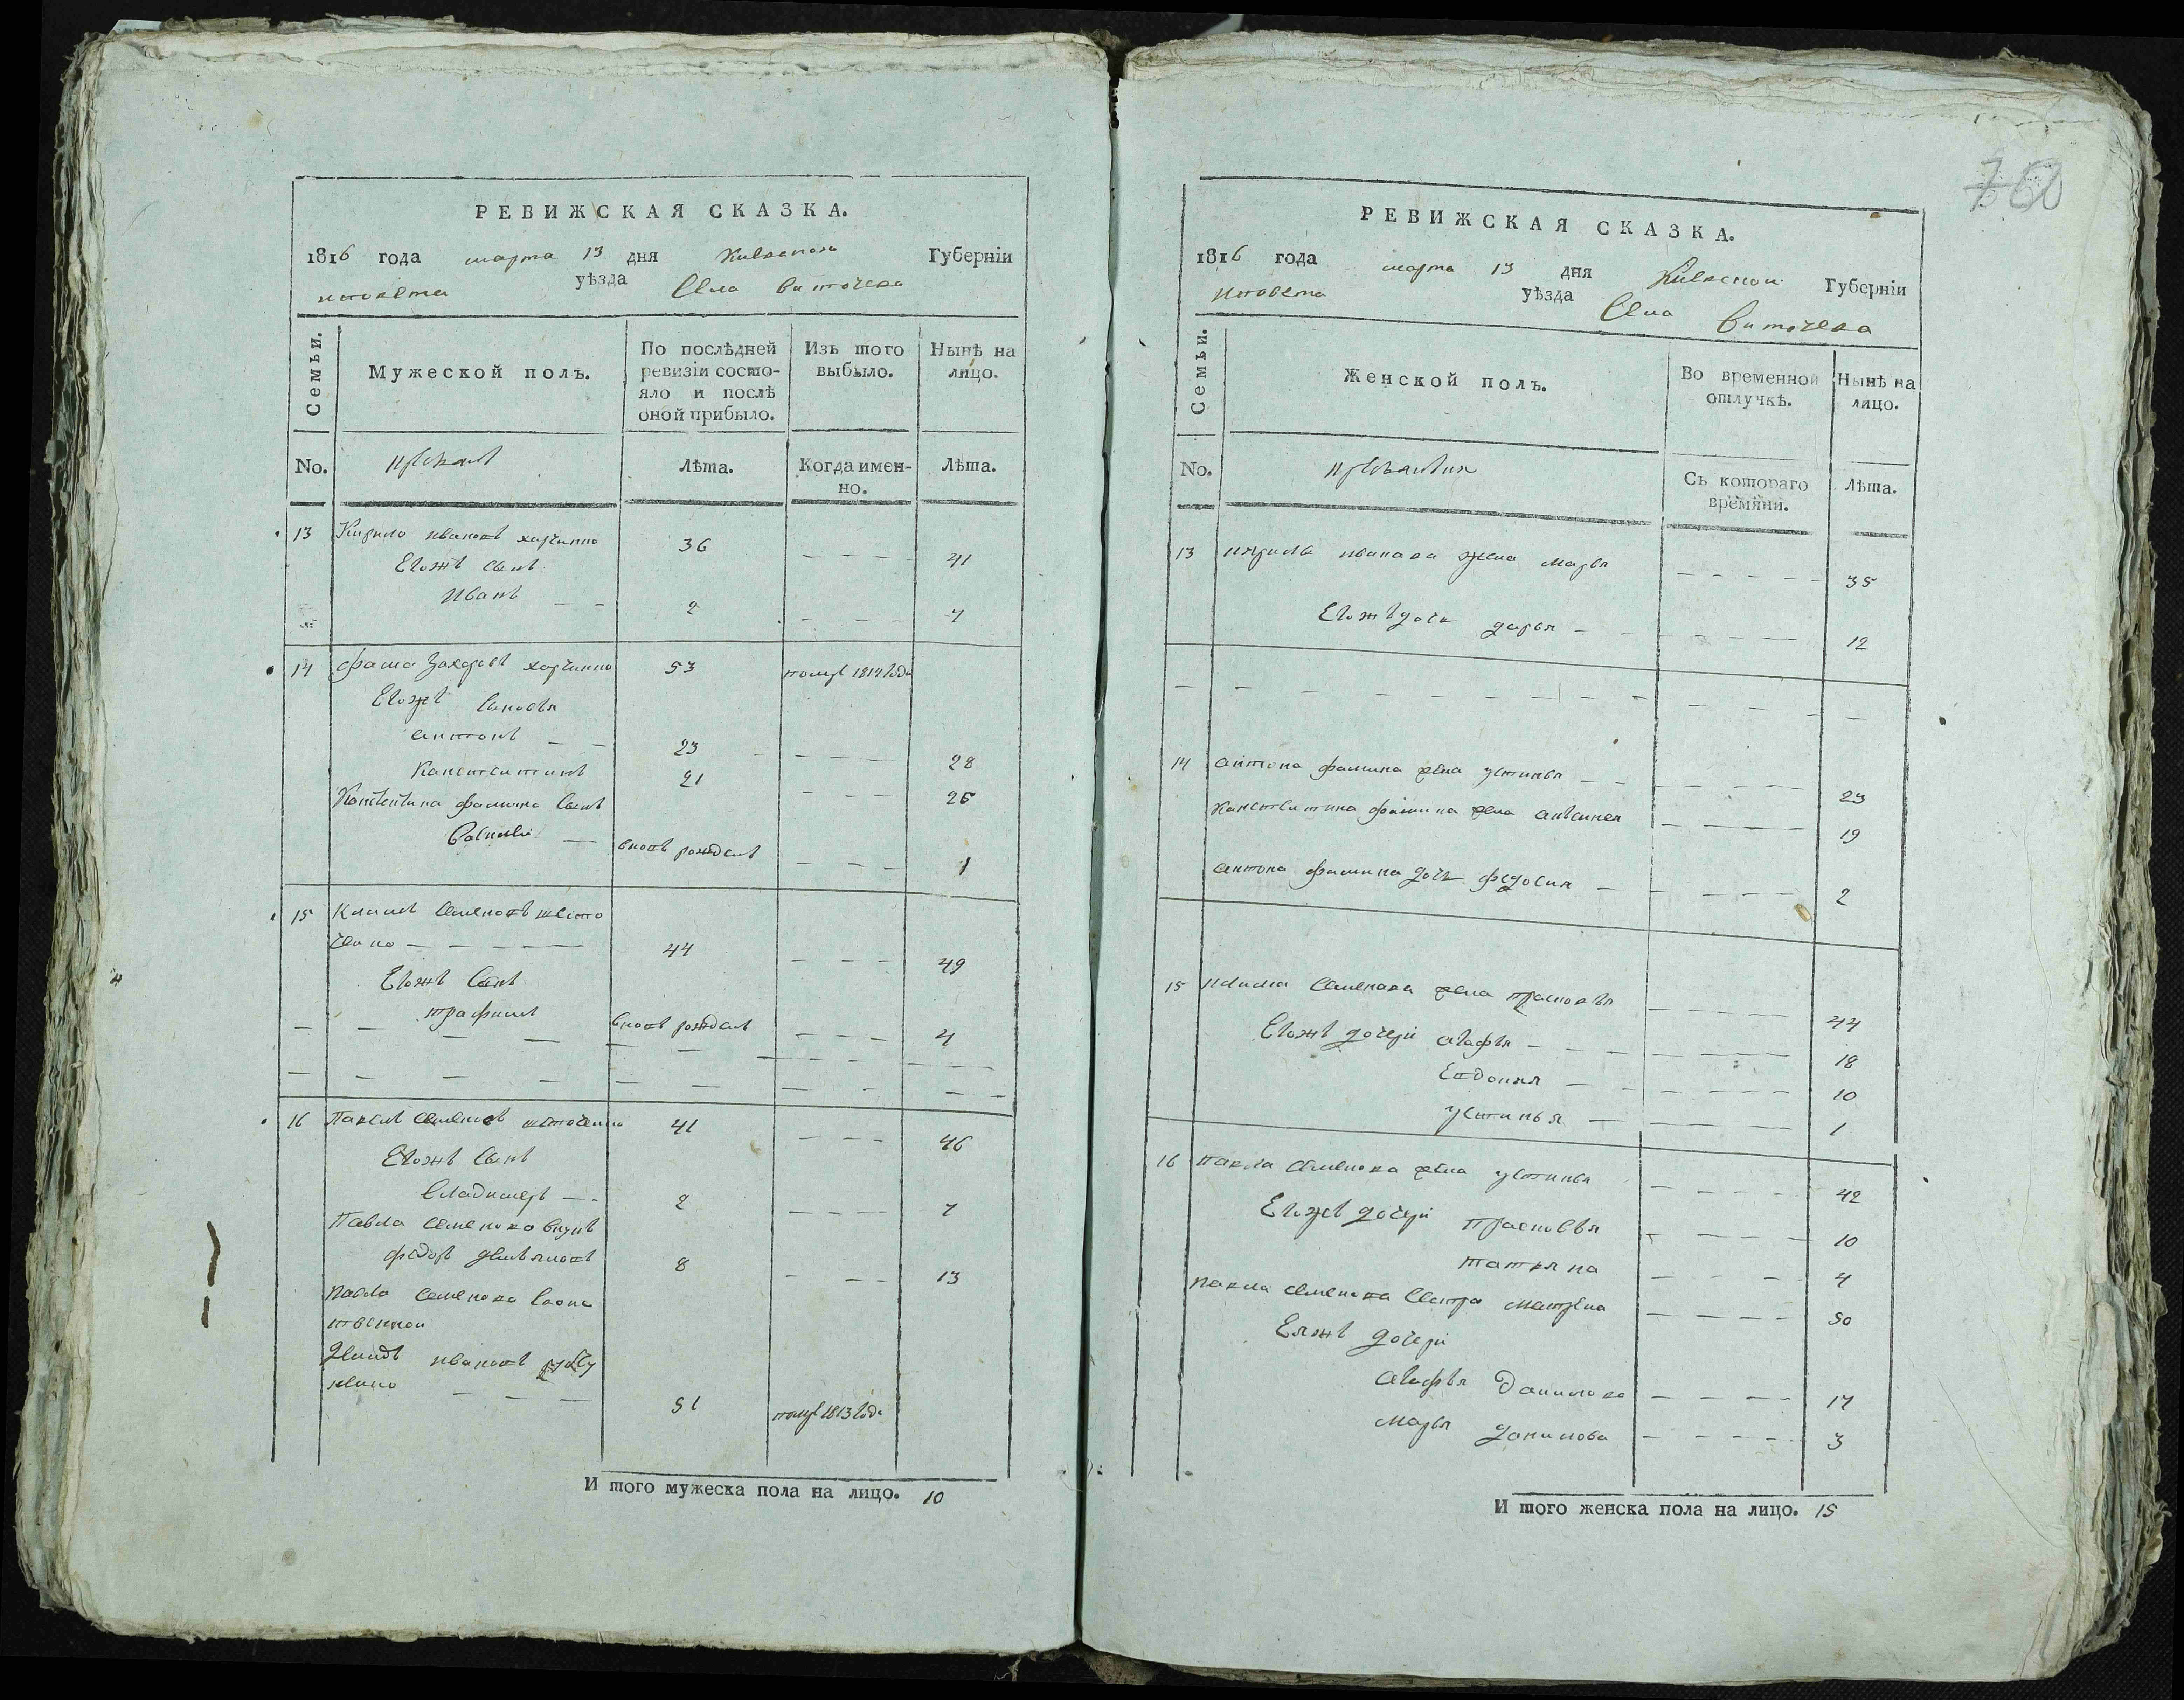 РЕВИЖСКАЯ СКАЗКА.
1816 года марта 13 дня Киевской Губерніи
повета уѣзда Села Витачева
Семьи. Мужеской полъ. По послѣдней ревизіи состояло и послѣ оной прибыло. Изъ того выбыло. Нынѣ на лицо.
No. Лѣта. Когда именно. Лѣта.
13 Кирило ивановъ харченко 36 41
Егожъ сынъ
Иванъ 2 7
14 фома Захаровъ харченко 53 помре 1814 года
Егожъ сыновья
антонъ 23 28
Константинъ 21 26
Константина фомина сынъ
Василій вновь рожденъ 1
15 Климъ Семеновъ шевченко 44 49
Егожъ сынъ
трофимъ вновь рожденъ 4
16 Павелъ Семеновъ 41 46
Егожъ сынъ
Владимеръ 2 7
Павла Семенова внукъ
федоръ 8 13
Павла Семенова
ивановъ 51 помре 1813 года
И того мужеска пола на лицо. 10
760
РЕВИЖСКАЯ СКАЗКА.
1816 года марта 13 дня Киевской Губерніи
повета уѣзда Села Витачева
Семьи. Женской полъ. Во временной отлучкѣ. Нынѣ на лицо.
No. Съ котораго времяни. Лѣта.
13 кирила иванова жена марья 35
Егожъ дочь дарья 12
14 антона фомина жена устинья 23
Константина фомина жена 19
антона фомина дочь федосия 2
15 Клима Семенова жена прасковья 44
Егожъ дочери агафья 18
Евдокия 10
устинья 1
16 Павла Семенова жена устинья 42
Егожъ дочери прасковья 10
татьяна 4
Павла Семенова сестра матрена 50
Еяжъ дочери
агафья Данилова 17
марья данилова 3
И того женска пола на лицо. 15